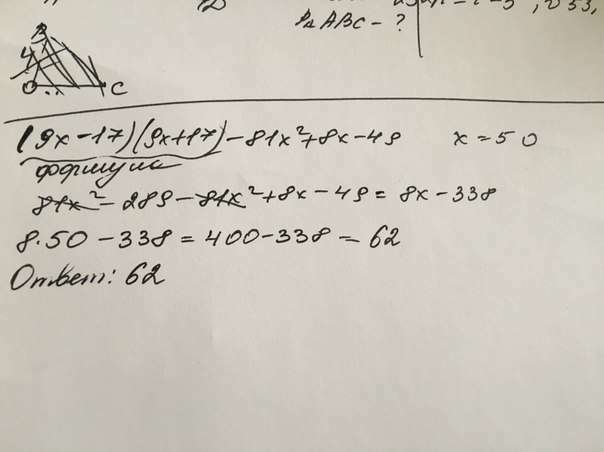 P△ABC - ?
B
4
C
(9x-17)(9x+17)-81x²+8x-49 x=50
формула
81x²-289-81x²+8x-49=8x-338
8·50-338=400-338=62
Ответ: 62